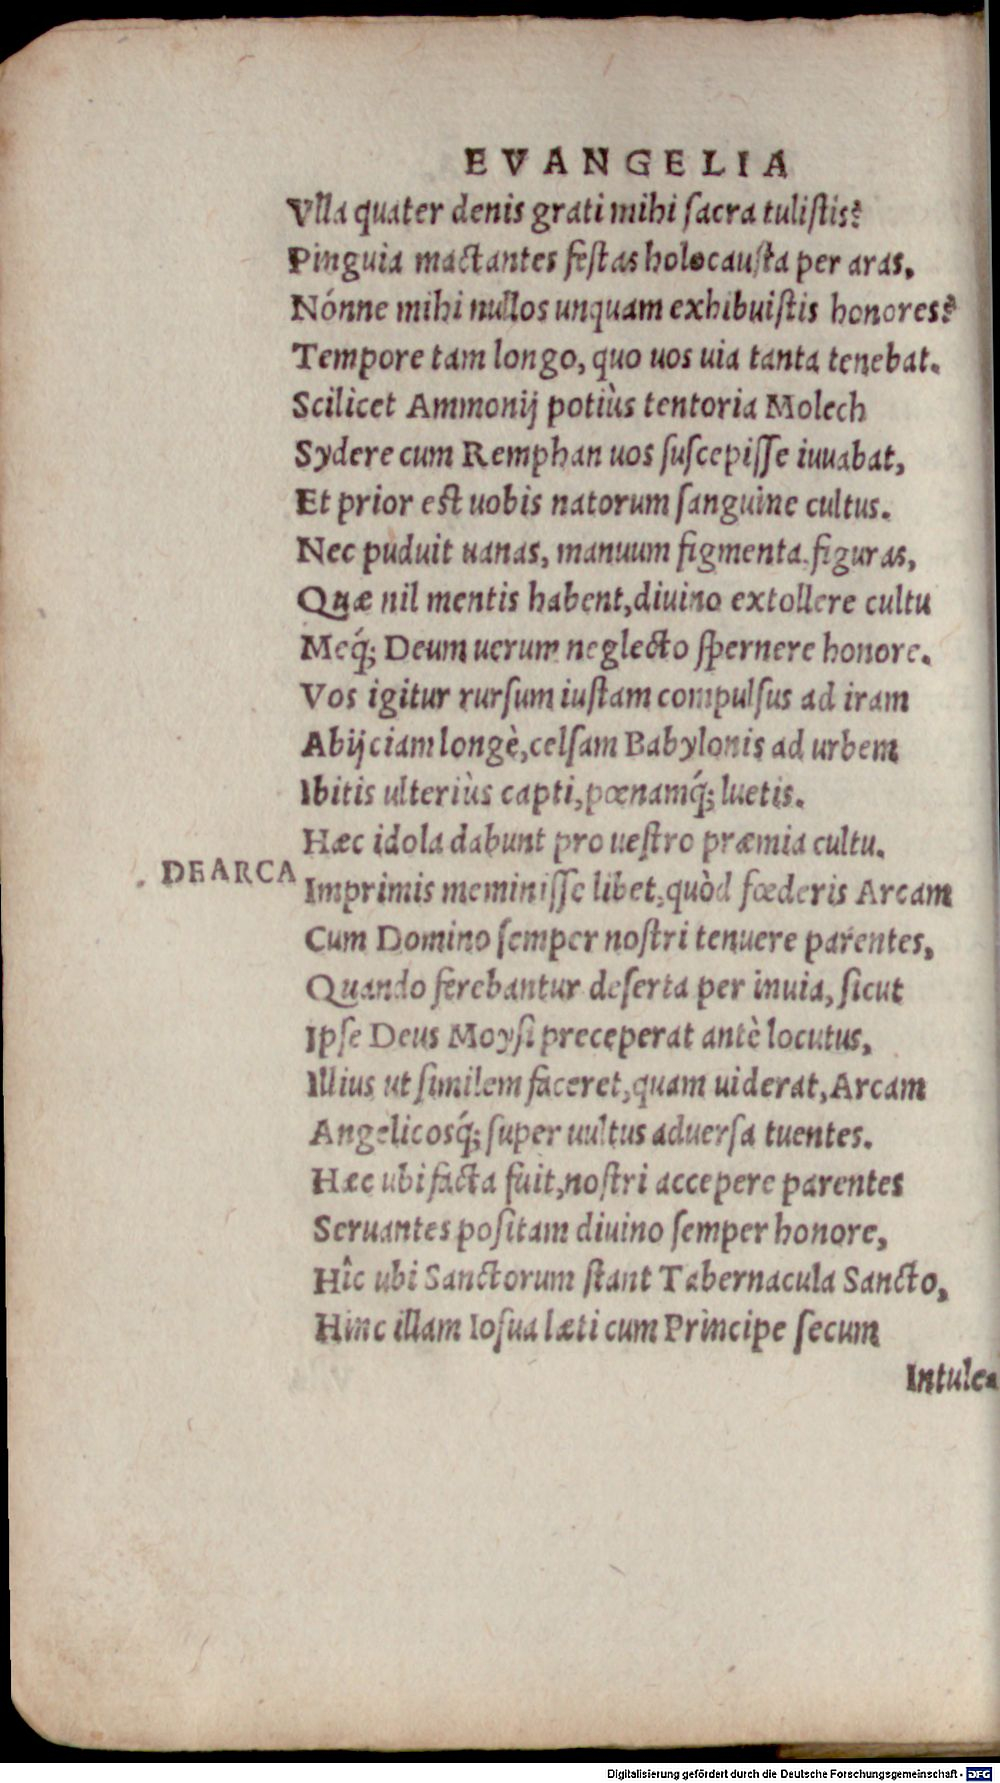 EVANGELIA
Vlla quater denis grati mihi ſacra tuliſtis?
Pinguia mactantes feſtas holocauſta per aras,
Nónne mihi nullos unquam exhibuiſtis honores?
Tempore tam longo, quo uos uia tanta tenebat.
Scilicet Ammonij potiùs tentoria Molech
Sydere cum Remphan uos ſuſcepiſſe iuuabat,
Et prior eſt uobis natorum ſanguine cultus.
Nec puduit uanas, manuum figmenta figuras,
Quæ nil mentis habent, diuino extollere cultu
Meq́; Deum uerum neglecto ſpernere honore.
Vos igitur rurſum iuſtam compulſus ad iram
Abijciam longè, celſam Babylonis ad urbem
Ibitis ulteriùs capti, pœnamq́; luetis.
Hæc idola dabunt pro ueſtro præmia cultu.
DE ARCA
Imprimis meminiſſe libet, quòd fœderis Arcam
Cum Domino ſemper noſtri tenuere parentes,
Quando ferebantur deſerta per inuia, ſicut
Ipſe Deus Moyſi preceperat antè locutus,
Illius ut ſimilem faceret, quam uiderat, Arcam
Angelicosq́; ſuper uultus aduerſa tuentes.
Hæc ubi facta fuit, noſtri accepere parentes
Seruantes poſitam diuino ſemper honore,
Hîc ubi Sanctorum ſtant Tabernacula Sancto,
Hinc illam Ioſua læti cum Principe ſecum
Intule-
Digitalisierung gefördert durch die Deutsche Forschungsgemeinschaft - DFG